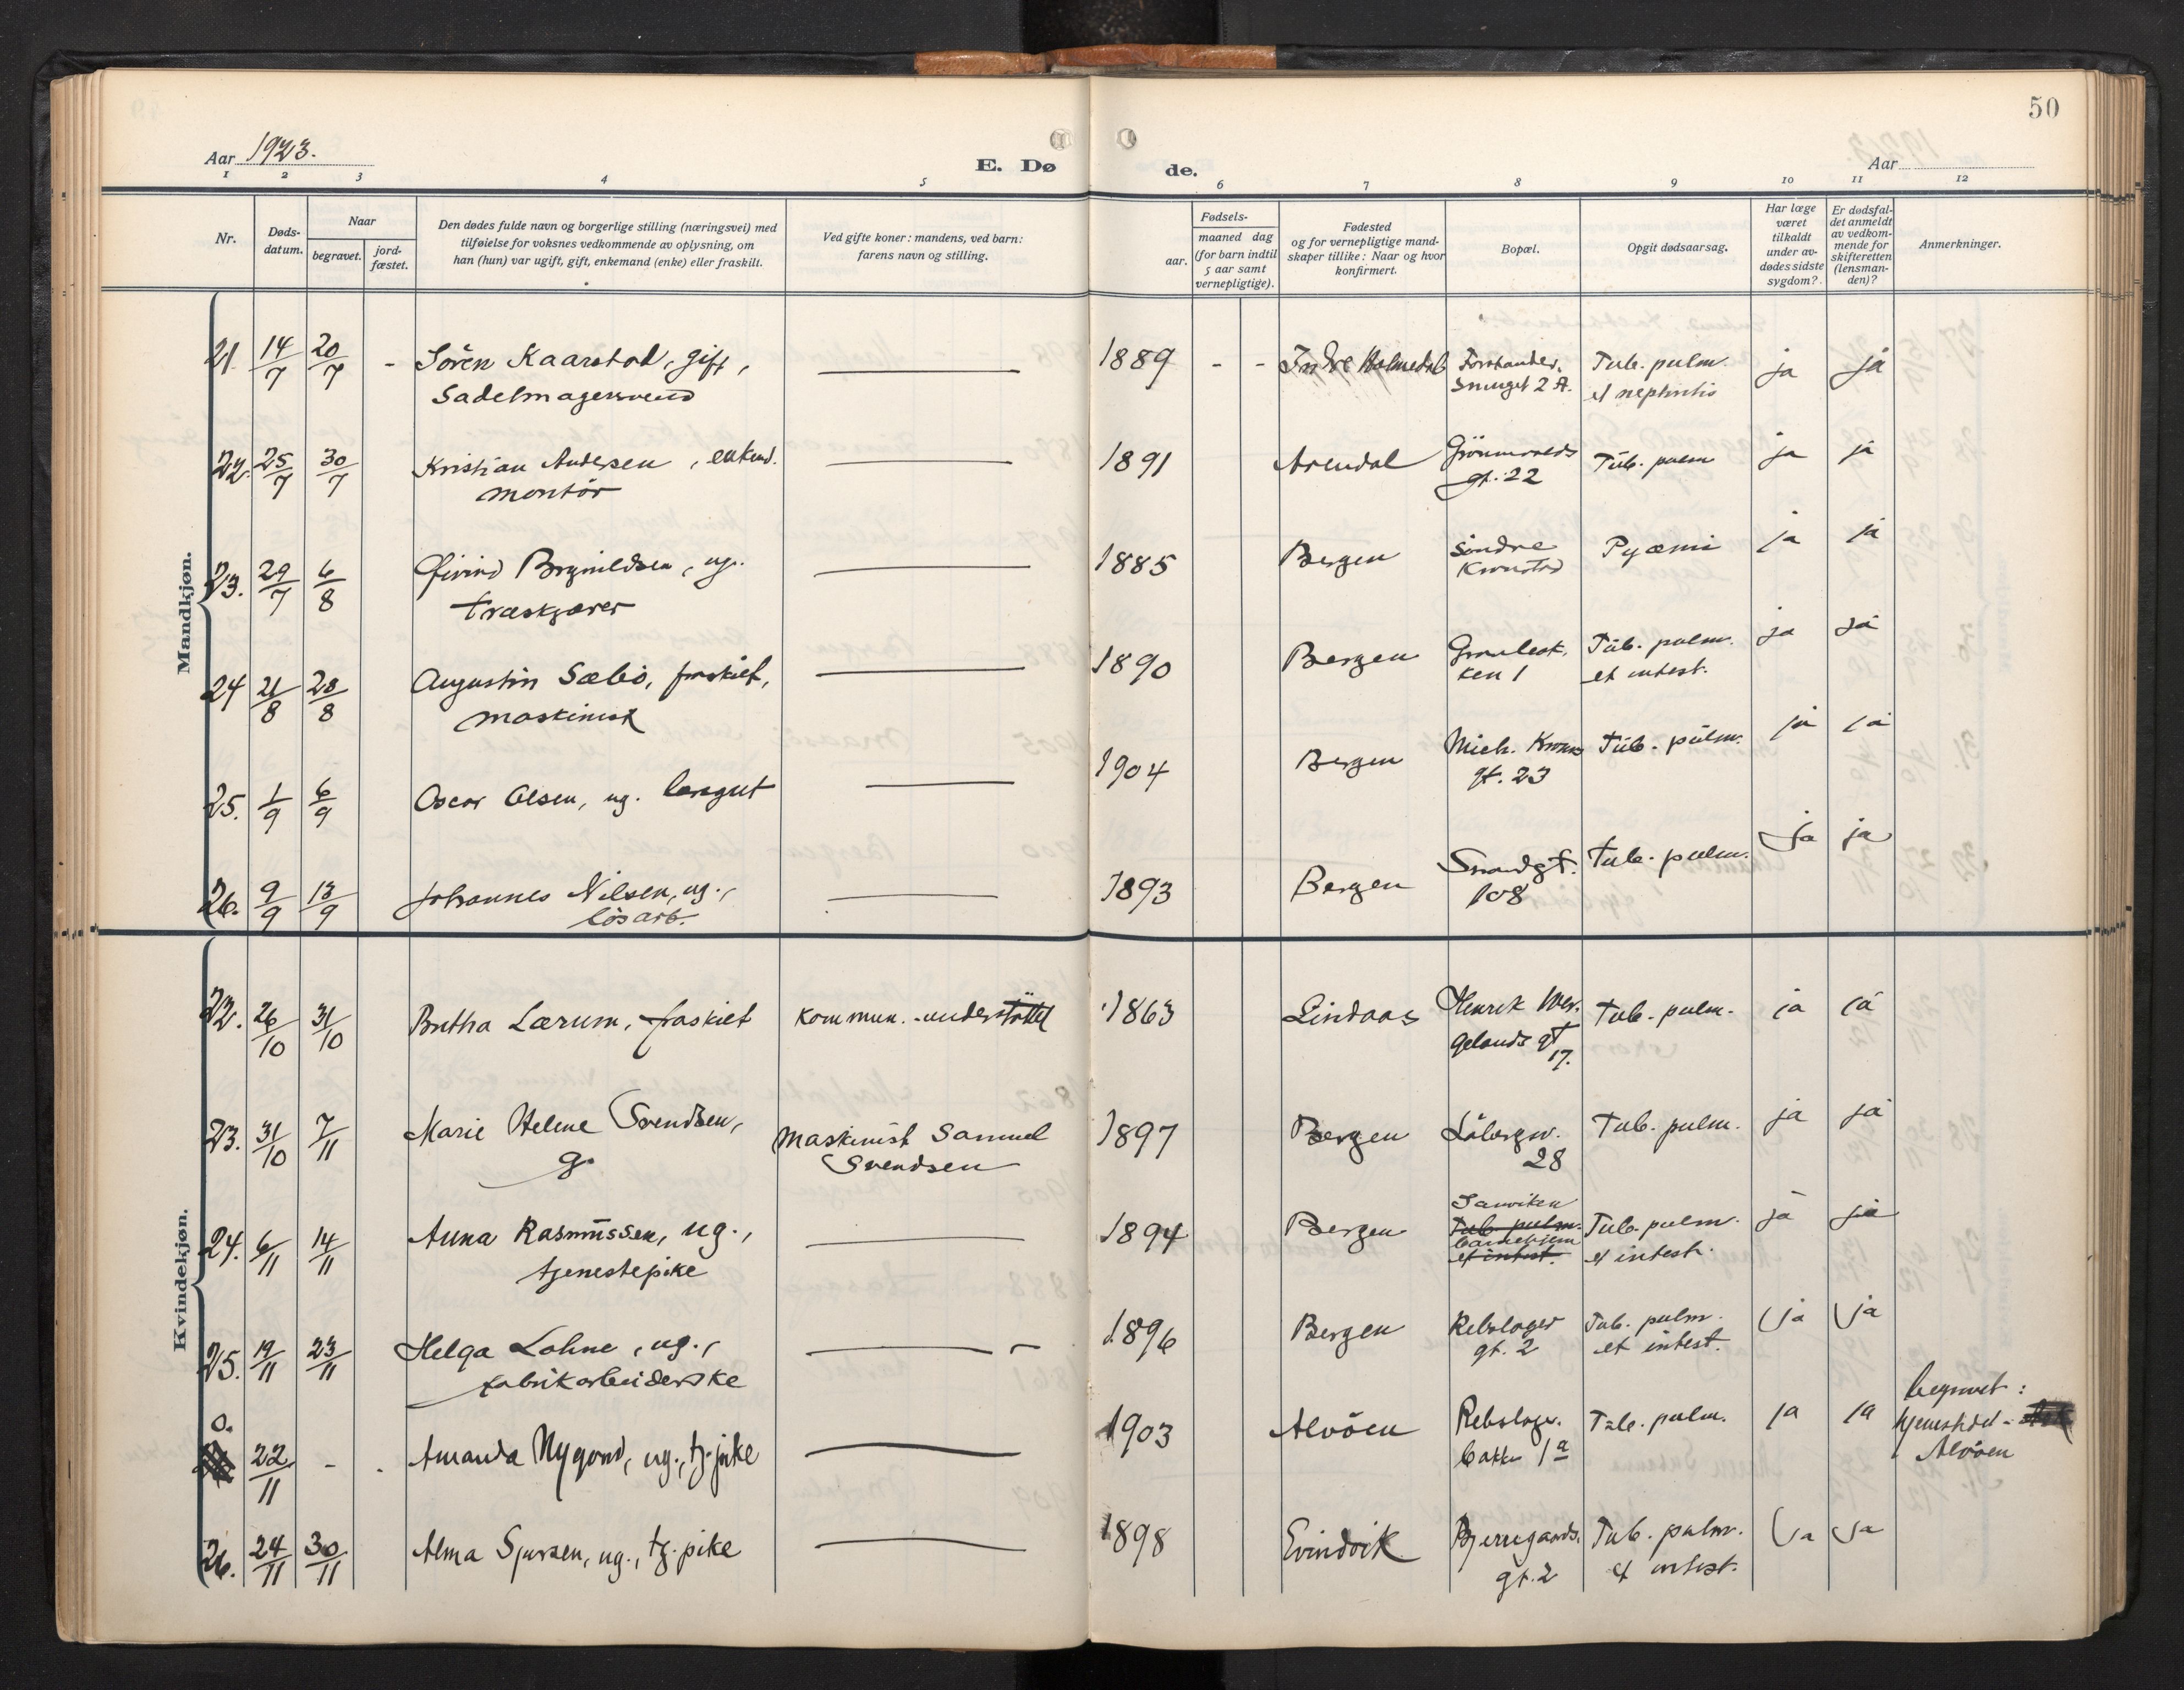 50
Aar 1923.
E. Dø
de.
Aar
1 2 3 4 5 6 7 8 9 10 11 12
Nr.
Døds-
datum.
Naar
begravet.
jord-
fæstet.
Den dødes fulde navn og borgerlige stilling (næringsvei) med
tilføielse for voksnes vedkommende av oplysning, om
han (hun) var ugift, gift, enkemand (enke) eller fraskilt.
Ved gifte koner: mandens, ved barn:
farens navn og stilling.
Fødsels-
aar.
maaned dag
(for barn indtil
5 aar samt
vernepligtige).
Fødested
og for vernepligtige mand-
skaper tillike: Naar og hvor
konfirmert.
Bopæl.
Opgit dødsaarsag.
Har læge
været
tilkaldt
under av-
dødes sidste
sygdom?
Er dødsfal-
det anmeldt
av vedkom-
mende for
skifteretten
(lensman-
den)?
Anmerkninger.
Mandkjøn.
21. 14/7 20/7 - Sören Kaarstad, gift, 1889 - - Indre Holmedal Forstander. Tub. pulm. ja ja
Sadelmagersvend smuget 2 A. et nephritis
22. 25/7 30/7 Kristian Andersen, enkem. 1891 Arendal Grönnevolds Tub. pulm ja ja
montör gt. 22
23. 29/7 6/8 Øivind Brynildsen, ug. 1885 Bergen Söndre Pyæmi ja ja
træskjærer Kronstad
24 21/8 28/8 Augustin Sæbö, fraskilt, 1890 Bergen Tub. pulm. ja ja
maskinist ken 1 et intest.
25. 1/9 6/9 Oscar Olsen, ug. læregut 1904 Bergen Mich. Krohns Tub. pulm. ja ja
gt. 23
26. 9/9 13/9 Johannes Nilsen, ug., 1893 Bergen Strandgt. Tub. pulm. ja ja
lösarb. 108
Kvindekjøn.
22. 26/10 31/10 Britha Lærum, fraskilt kommun. understöttet 1863 Lindaas Henrik Wer. Tub. pulm. ja ja
gelands gt
17.
23. 31/10 7/11 Marie Helene Svendsen, Maskinist Samuel 1897 Bergen Löbergsv. Tub. pulm. ja ja
g. Svendsen 28
24. 6/11 14/11 Anna Rasmussen, ug., 1894 Bergen Sanviken Tub. pulm. Tub. pulm. ja ja
tjenestepike barnehjem et intest. et intest.
25. 19/11 23/11 Helga Lohne, ug., 1896 Bergen Rebslager Tub. pulm. ja ja
fabrikarbeiderske gt. 2 et intest.
0. 22/11 - Amanda Nygaard, ug., tj. pike 1903 Alvöen Rebslager. Tub. pulm. ja ja begravet:
bakke 1a hjemstedet -
Alvöen
26. 24/11 30/11 Alma Sjursen, ug., tj. pike 1898 Evindvik Bjerregaards. Tub. pulm. ja ja
gt. 2 et intest.